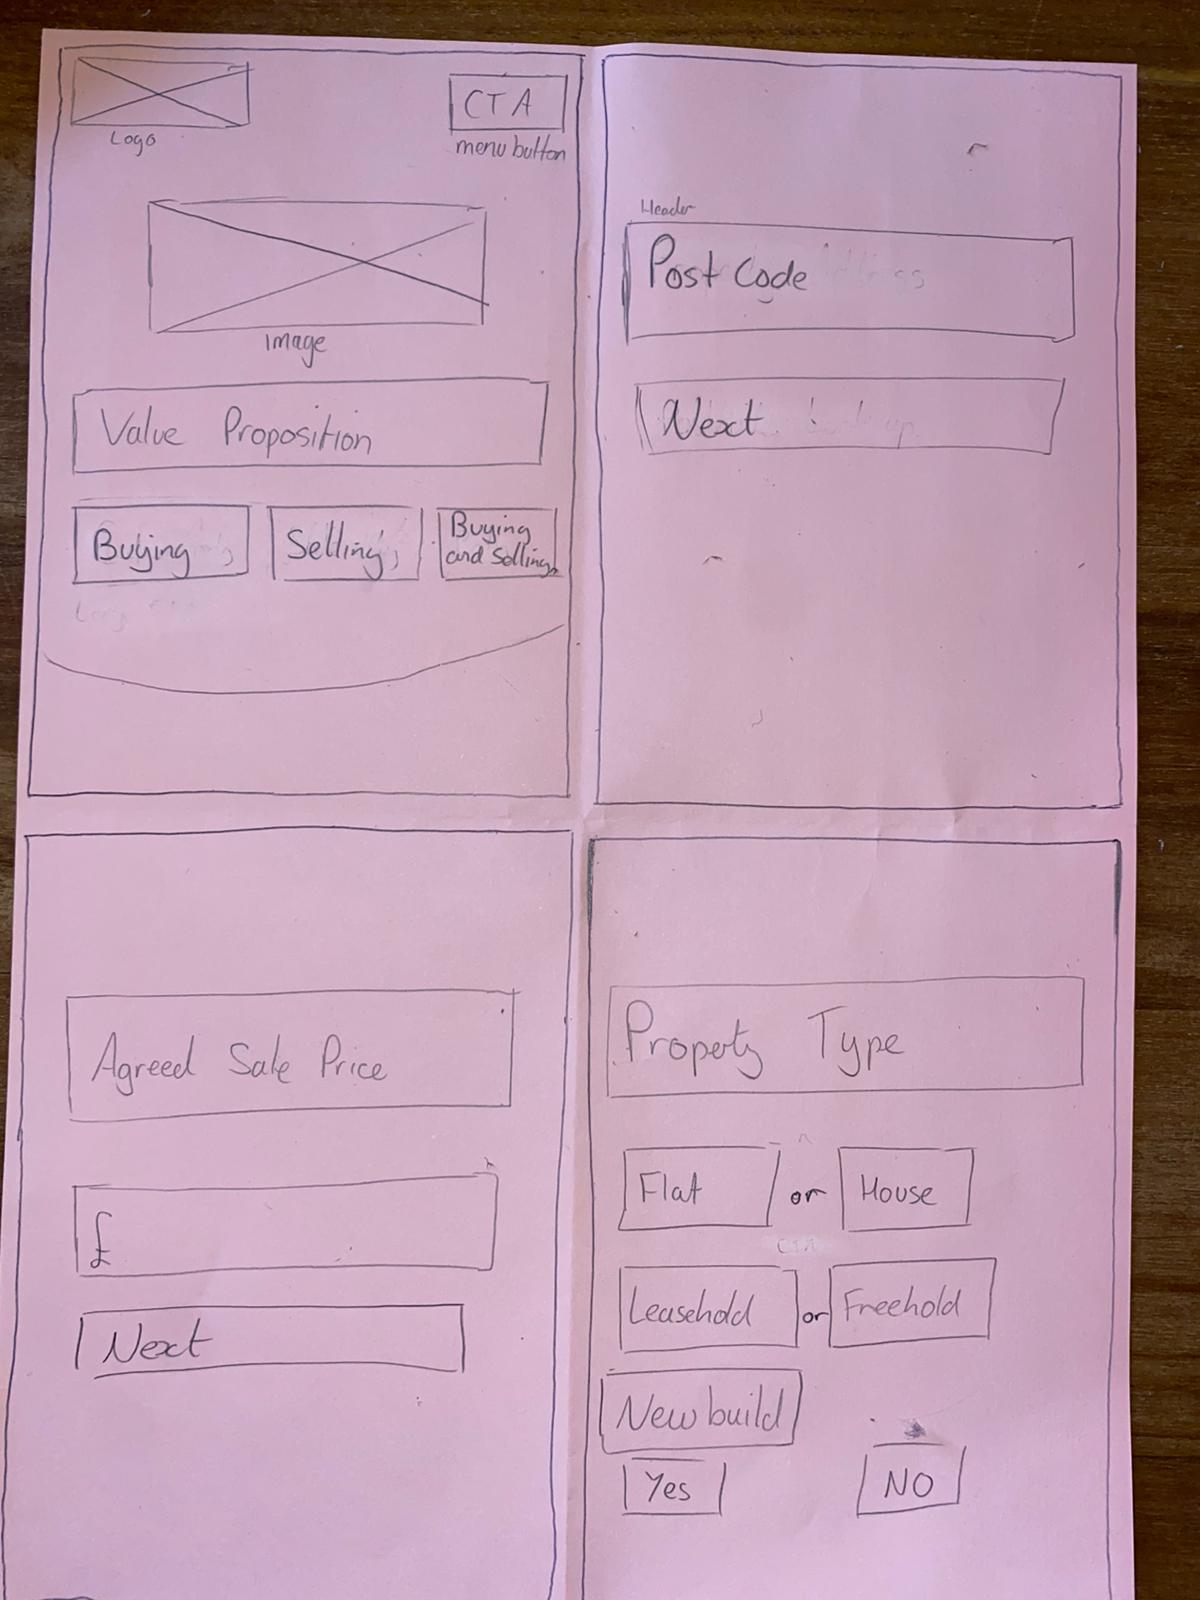 Logo
CTA
menu button
Image
Value Proposition
Buying
Selling
Buying
and Selling
Header
Post Code
Next
Agreed Sale Price
£
Next
Property Type
Flat or House
Leasehold or Freehold
New build
Yes NO